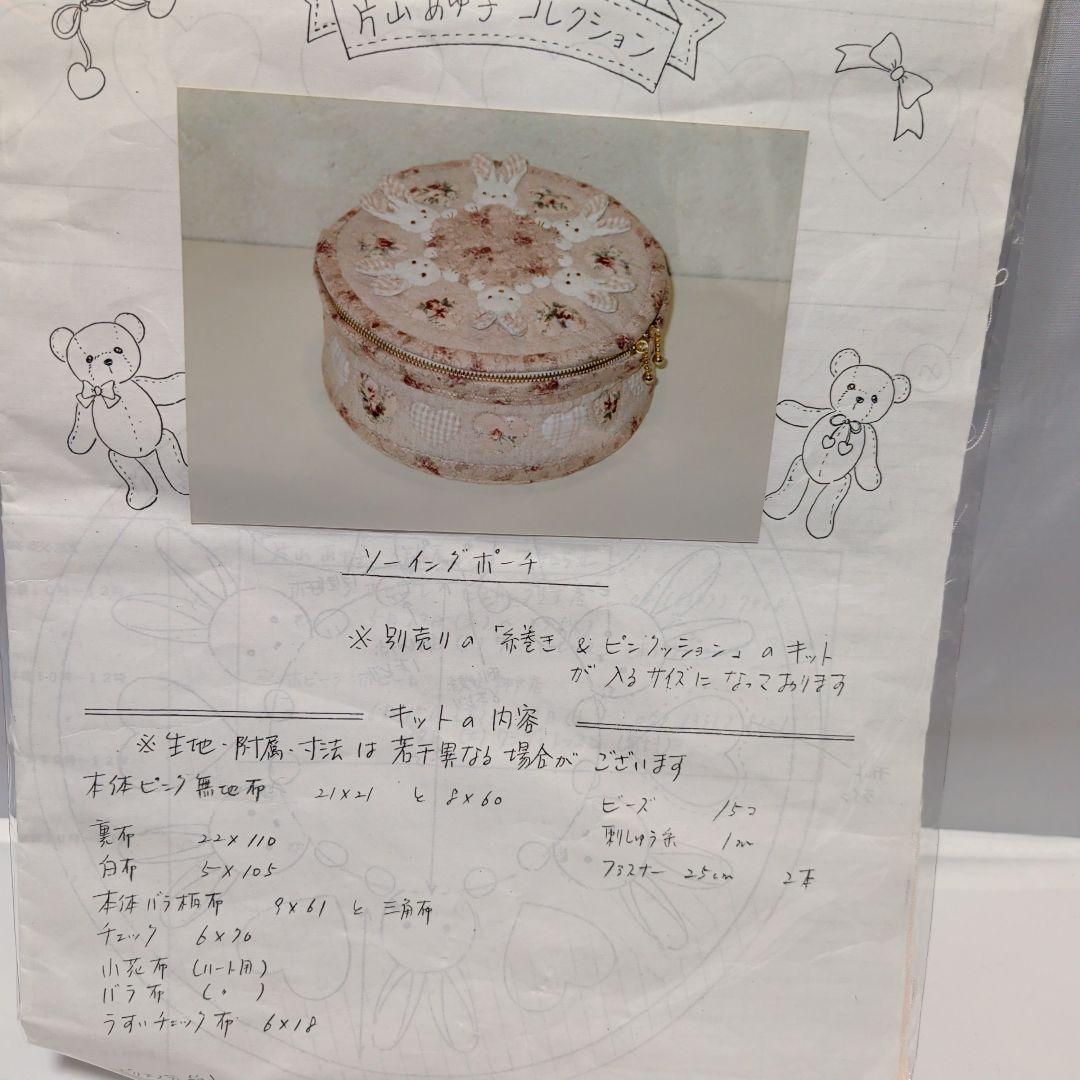 片山あゆ子 コレクション
ソーイングポーチ
※ 別売りの「糸巻き & ピンクッション」のキット
が 入るサイズに なっております
キットの内容
※ 生地・附属・寸法は 若干異なる場合が ございます
本体ピンク無地布 21×21 と 8×60
裏布 22×110
白布 5×105
本体バラ柄布 9×61 と 三角布
チェック 6×70
小花布 (ハート用)
バラ布 (〃)
うすいチェック布 6×18
ビーズ 15コ
刺しゅう糸 1m
ファスナー 25cm 2本